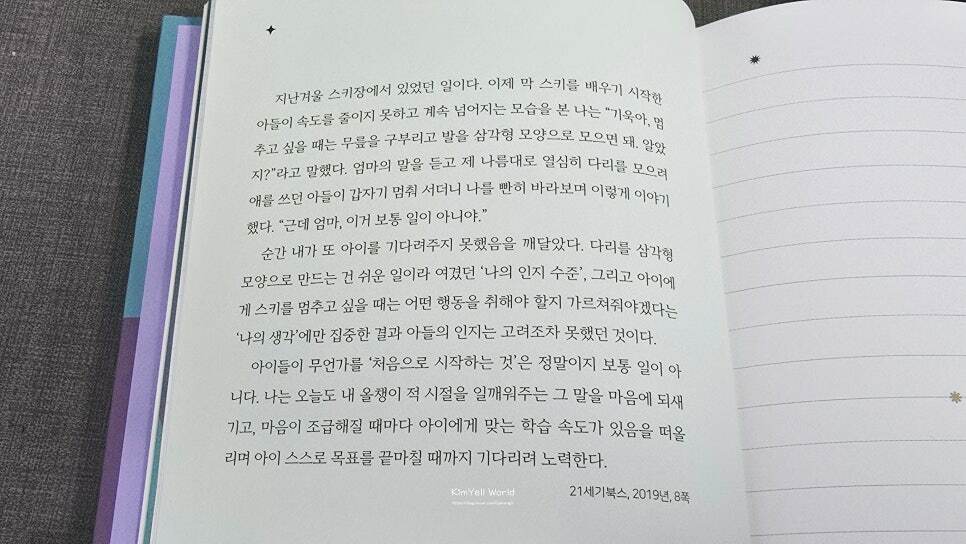 지난겨울 스키장에서 있었던 일이다. 이제 막 스키를 배우기 시작한
아들이 속도를 줄이지 못하고 계속 넘어지는 모습을 본 나는 “기욱아, 멈
추고 싶을 때는 무릎을 구부리고 발을 삼각형 모양으로 모으면 돼. 알았
지?”라고 말했다. 엄마의 말을 듣고 제 나름대로 열심히 다리를 모으려
애를 쓰던 아들이 갑자기 멈춰 서더니 나를 빤히 바라보며 이렇게 이야기
했다. “근데 엄마, 이거 보통 일이 아니야.”
순간 내가 또 아이를 기다려주지 못했음을 깨달았다. 다리를 삼각형
모양으로 만드는 건 쉬운 일이라 여겼던 ‘나의 인지 수준’, 그리고 아이에
게 스키를 멈추고 싶을 때는 어떤 행동을 취해야 할지 가르쳐줘야겠다는
‘나의 생각’에만 집중한 결과 아들의 인지는 고려조차 못했던 것이다.
아이들이 무언가를 ‘처음으로 시작하는 것’은 정말이지 보통 일이 아
니다. 나는 오늘도 내 올챙이 적 시절을 일깨워주는 그 말을 마음에 되새
기고, 마음이 조급해질 때마다 아이에게 맞는 학습 속도가 있음을 떠올
리며 아이 스스로 목표를 끝마칠 때까지 기다리려 노력한다.
21세기북스, 2019년, 8쪽
KimYell World